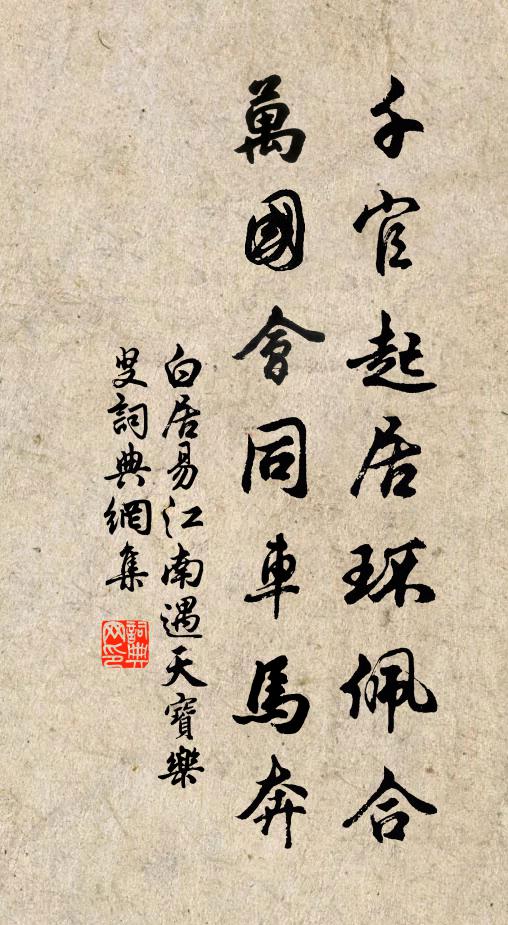 千官起居环佩合
萬國會同車馬奔
白居易江南遇天寶樂
叟詞典網集
詞典網印